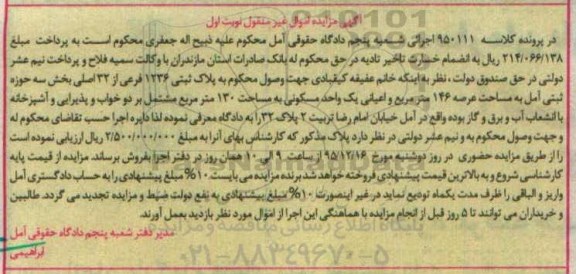 آگهی مزایده اموال غیر منقول نوبت اول
در پرونده کلاسه ۹۵۰۱۱۱ اجرائی شعبه پنجم دادگاه حقوقی آمل محکوم علیه ذبیح اله جعفری محکوم است به پرداخت مبلغ
۲۱۴/۰۶۶/۱۳۸ ریال به انضمام خسارت تاخیر تادیه در حق محکوم له بانک صادرات استان مازندران با وکالت سمیه فلاح و پرداخت نیم عشر
دولتی در حق صندوق دولت ، نظر به اینکه خانم عفیفه کیقبادی جهت وصول محکوم به پلاک ثبتی ۱۲۳۶ فرعی از ۳۲ اصلی بخش سه حوزه
ثبتی آمل به مساحت عرصه ۱۴۶ متر مربع و اعیانی یک واحد مسکونی به مساحت ۱۳۰ متر مربع مشتمل بر دو خواب و پذیرایی و آشپزخانه
با انشعاب آب و برق و گاز بوده واقع در آمل خیابان امام رضا تربیت ۲ پلاک ۳۲را به دادگاه معرفی نموده لذا دایره اجرا حسب تقاضای محکوم له
و جهت وصول محکوم به و نیم عشر دولتی در نظر دارد پلاک مذکور که کارشناس بهای آنرا به مبلغ ۲/۵۰۰/۰۰۰/۰۰۰ ریال ارزیابی نموده است
را از طریق مزایده حضوری در روز دوشنبه مورخ ۹۵/۱۲/۱۶ از ساعت ۹ الی ۱۰ همان روز در دفتر اجرا بفروش برساند. مزایده از قیمت پایه
کارشناسی شروع و به بالاترین قیمت پیشنهادی فروخته خواهد شد برنده مزایده می بایست ۱۰٪ مبلغ پیشنهادی را به حساب دادگستری آمل
واریز و الباقی را ظرف مدت یکماه تودیع نماید در غیر اینصورت ۱۰٪ مبلغ پیشنهادی به نفع دولت ضبط و مزایده تجدید می گردد. طالبین
و خریداران می توانند تا ۵ روز قبل از انجام مزایده با هماهنگی این اجرا از اموال مورد نظر بازدید بعمل آورند.
مدیر دفتر شعبه پنجم دادگاه حقوقی آمل
ابراهیمی
پایگاه اطلاع رسانی مناقصه و مزایده
۰۲۱-۸۸۳۴۹۶۷۰-۵